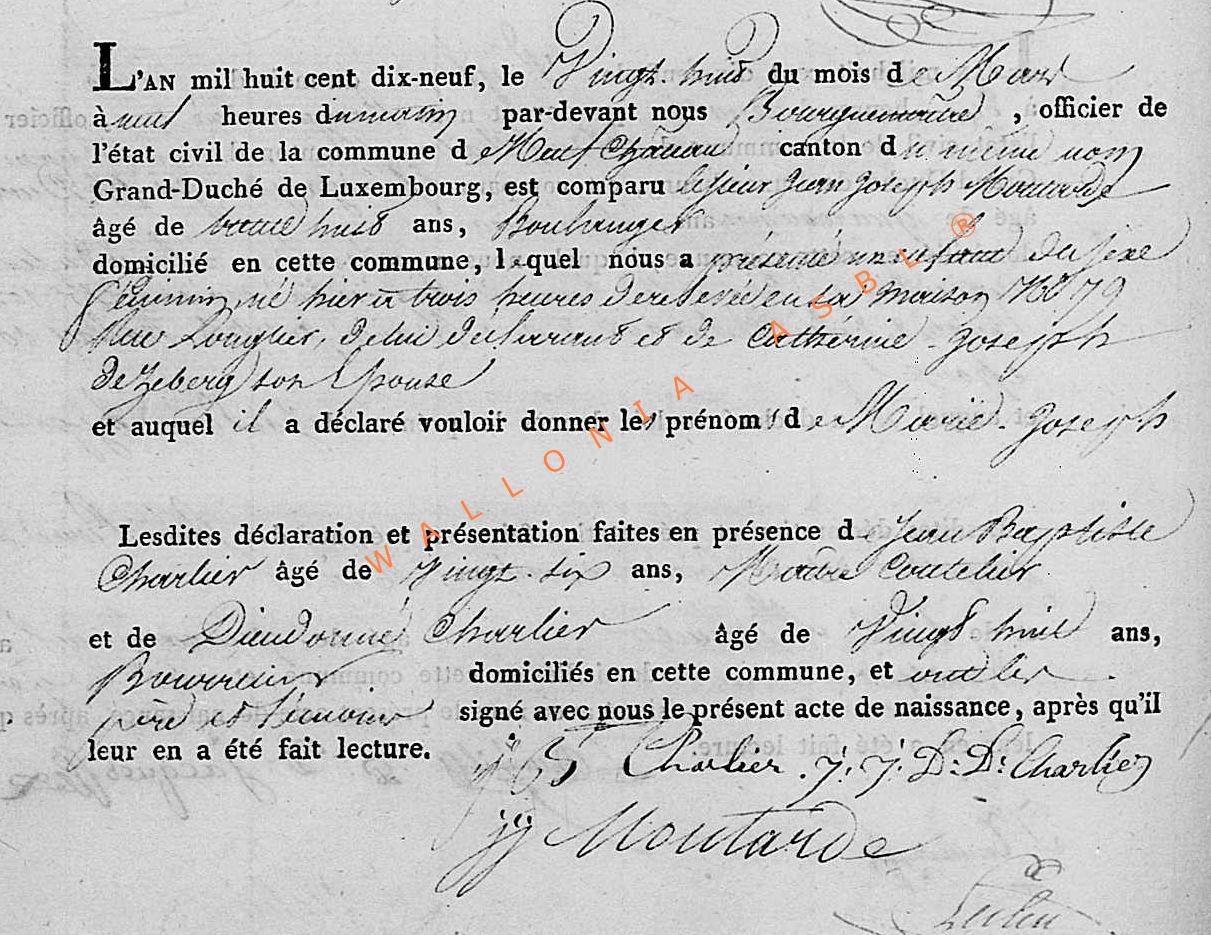 L'AN mil huit cent dix-neuf, le Vingt huit du mois de Mars
à neuf heures du matin par-devant nous Bourguemaitre, officier de
l'état civil de la commune de Neufchâteau canton du même nom
Grand-Duché de Luxembourg, est comparu le sieur Jean Joseph Moutarde
âgé de trente huit ans, Boulanger
domicilié en cette commune, lequel nous a présenté un enfant du sexe
féminin, né hier à trois heures de relevée en sa maison No 79
Rue Longlier, de lui déclarant et de Cathérine Joseph
deZeberg son Epouse
et auquel il a déclaré vouloir donner les prénoms de Marie-Joseph
Lesdites déclaration et présentation faites en présence de Jean Baptiste
Charlier âgé de Vingt-six ans, Maitre Coutelier
et de Dieudonné Charlier âgé de Vingt huit ans,
domiciliés en cette commune, et ont les
père et témoins signé avec nous le présent acte de naissance, après qu'il
leur en a été fait lecture.
Charlier. J. J. D: D: Charlier
jj Moutarde
WALLONIA ASBL ®